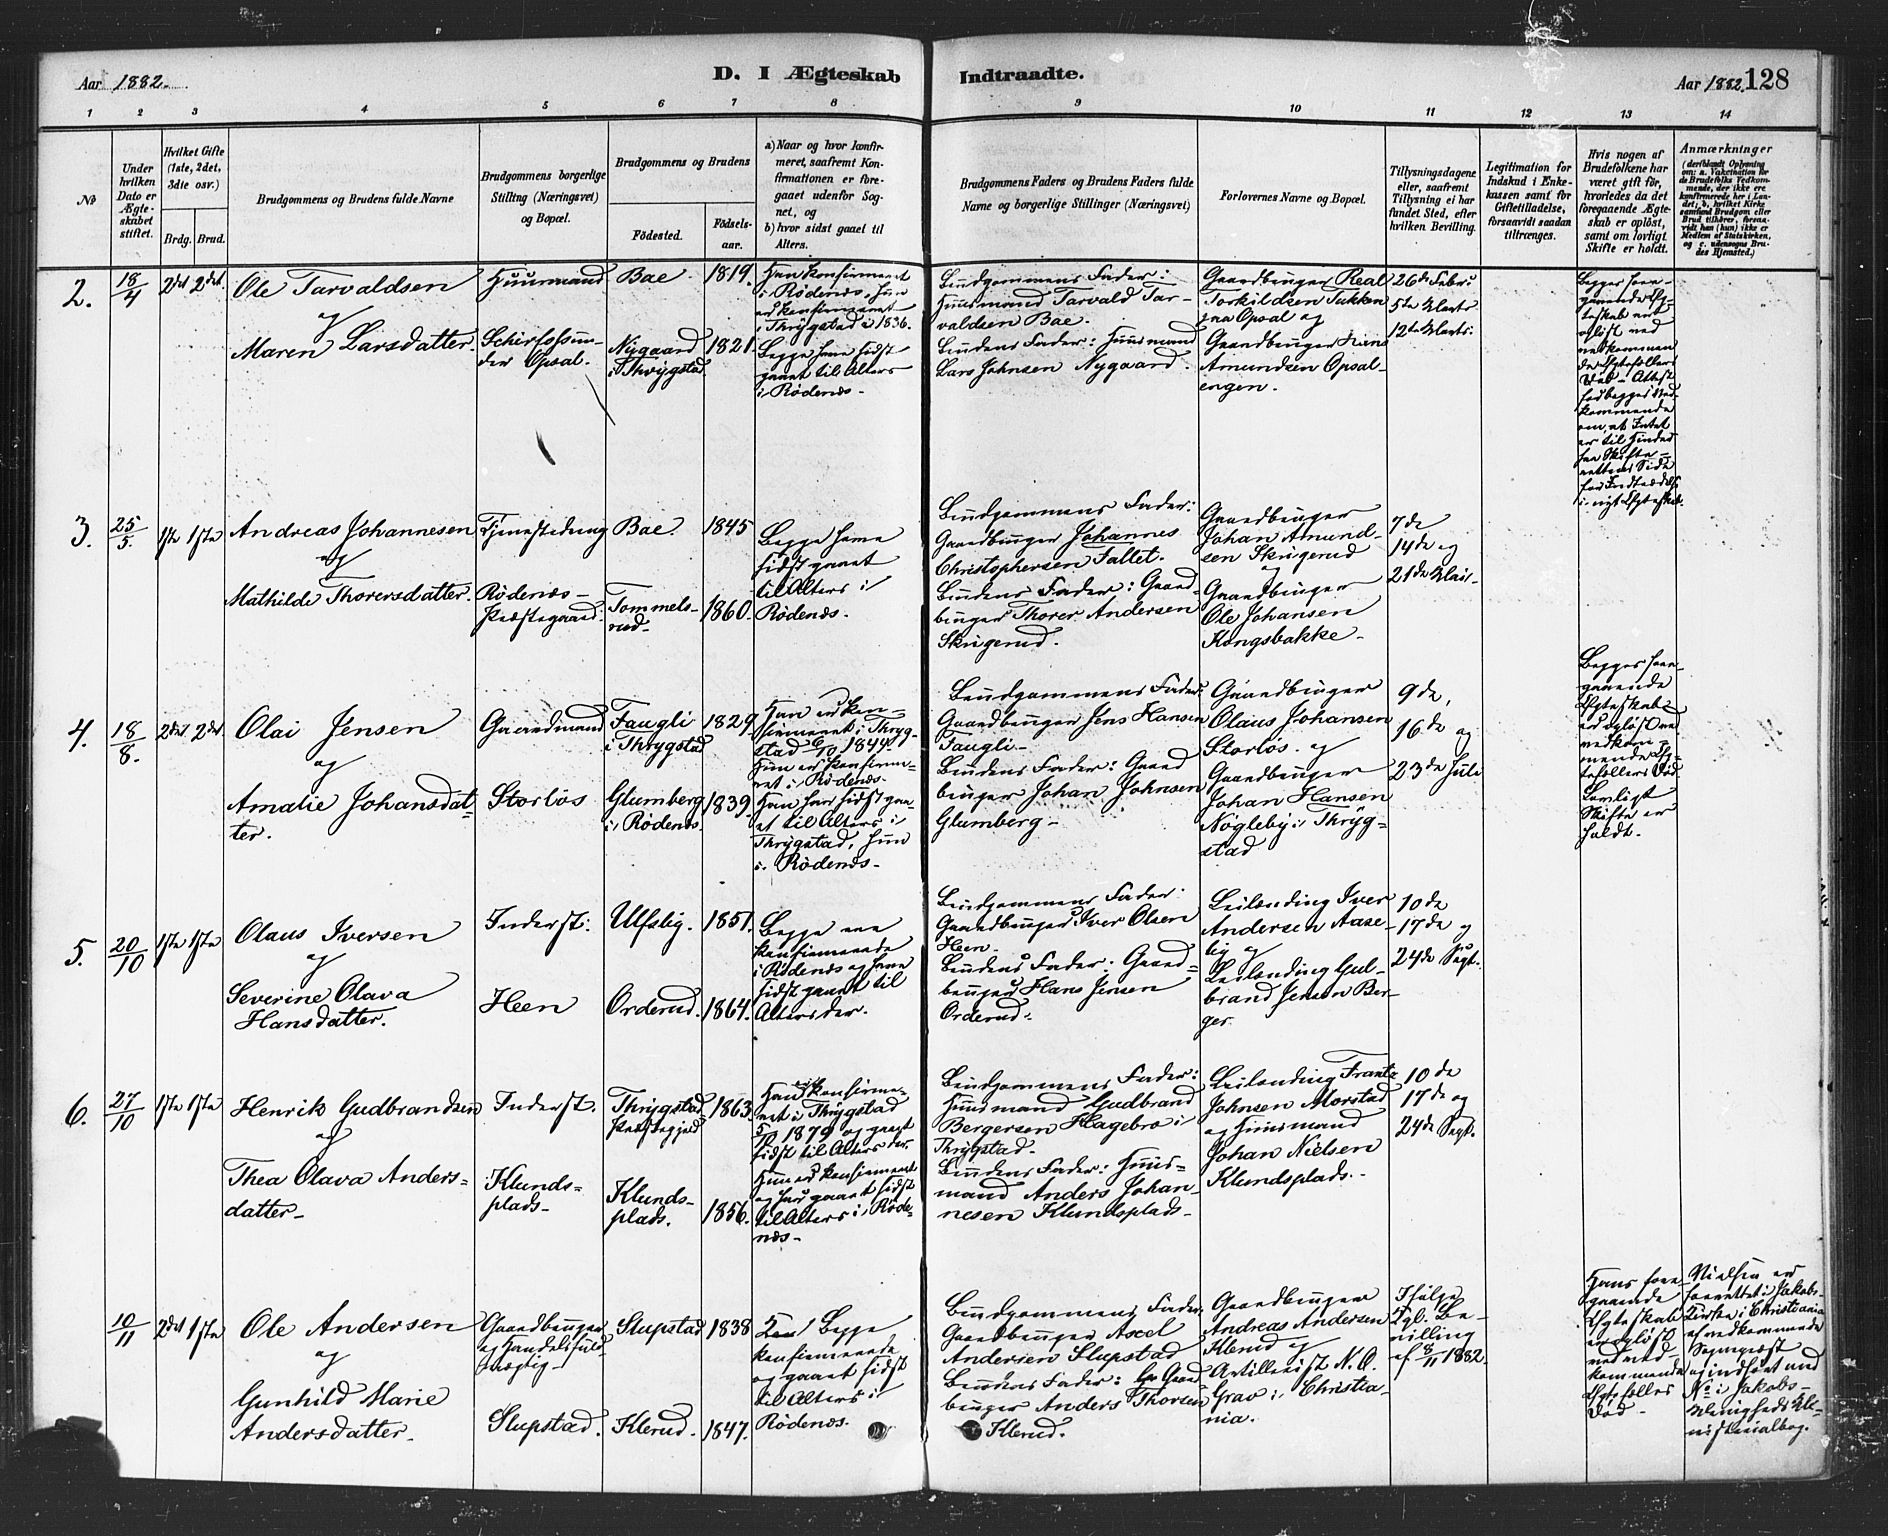 Aar 1882.
D. I Ægteskab Indtraadte.
Aar 1882. 128
1 2 3 4 5 6 7 8 9 10 11 12 13 14
No
Under hvilken Dato er Ægteskabet stiftet.
Hvilket Gifte (1ste, 2det, 3die osv.)
Brdg. Brud.
Brudgommens og Brudens fulde Navne
Brudgommens borgerlige Stilling (Næringsvei) og Bopæl.
Brudgommens og Brudens
Fødested.
Fødsels-aar.
a) Naar og hvor konfir-
meret, saafremt Kon-
firmationen er fore-
gaaet udenfor Sog-
net, og
b) hvor sidst gaaet til
Alters.
Brudgommens Faders og Brudens Faders fulde
Navne og borgerlige Stillinger (Næringsvei)
Forlovernes Navne og Bopæl.
Tillysningsdagene
eller, saafremt
Tillysning ei har
fundet Sted, efter
hvilken Bevilling.
Legitimation for
Indskud i Enke-
kassen samt for
Giftetilladelse,
forsaavidt saadan
tiltrænges.
Hvis nogen af
Brudefolkene har
været gift før,
hvorledes da det
foregaaende Ægte-
skab er opløst,
samt om lovligt
Skifte er holdt.
Anmærkninger
2.
18/4
2det 2det
Ole Tarvaldsen
og
Maren Larsdatter.
Huusmand
Opsal.
Bae.
Nygaard
i Thrygstad.
1819.
1821.
Han konfirmeret
i Rødenæs, hun
er konfirmeret
i Thrygstad i 1836.
Begge have sidst
gaaet til Alters
i Rødenæs.
Brudgommens Fader:
Huusmand Tarvald Tar-
valdsen Bae.
Brudens Fader: Huusmand
Lars Johnsen Nygaard.
Gaardbruger Real
Torkildsen Tukken
paa Opsal og
Gaardbruger Hans
Amundsen Opsal-
engen.
26de Febr:
5te Marts
12te Marts:
Begges fore-
gaaende Æg-
teskab ere
opløst ved
vedkommen
de Ægtefællers
Død - Attest
for begges Ved-
kommende
om, at Intet
er til Hinder
fra Skifte-
rettens Side
for Indtrædelse
i nyt Ægteskab.
3.
25/5.
1ste 1ste
Andreas Johannesen
og
Mathilde Thorersdatter.
Tjenestedreng
Rødenæs-
Præstegaard.
Bae.
Tommels-
rud.
1845
1860.
Begge have
sidst gaaet
til Alters i
Rødenæs.
Brudgommens Fader:
Gaardbruger Johannes
Christophersen Fallet.
Brudens Fader: Gaard-
bruger Thorer Andersen
Skrigerud.
Gaardbruger
Johan Amund-
sen Skrigerud
og
Gaardbruger
Ole Johansen
Kongsbakke.
7de
14de og
21de Mai.
4.
18/8.
2det 2det
Olai Jensen
og
Amalie Johansdat-
ter.
Gaardmand
Storløs
Faugli
i Thrygstad
Glumberg
i Rødenæs.
1829.
1839.
Han er kon-
firmeret i Thryg-
stad 6/10 1844
Hun er konfirme-
ret i Rødenæs.
Han har sidst gaa-
et til Alters i
Thrygstad, hun
i Rødenæs.
Brudgommens Fader:
Gaardbruger Jens Hansen
Faugli.
Brudens Fader: Gaard
bruger Johan Johnsen
Glumberg.
Gaardbruger
Olaus Johansen
Storløs og
Gaardbruger
Johan Hansen
Nøgleby i Thryg-
stad
9de,
16de og
23de Juli
Begges fore-
gaaende
Ægteskab
er opløst ved
vedkom-
mende Æg-
tefællers Død
Lovligt
Skifte er
holdt.
5.
20/10
1ste 1ste
Olaus Iversen
og
Severine Olava
Hansdatter.
Inderst:
Heen
Ulfsby.
Orderud.
1851.
1864.
Begge ere
konfirmerede
i Rødenæs og have
sidst gaaet til
Alters der.
Brudgommens Fader:
Gaardbruger Iver Olsen
Heen.
Brudens Fader: Gaard-
bruger Hans Jensen
Orderud.
Leilending Iver
Andersen Aase-
by og
Leilending Gul-
brand Jensen Ber-
ger.
10de
17de og
24de Sept.
6.
27/10
1ste 1ste
Henrik Gudbrandsen
og
Thea Olava Anders-
datter.
Inderst.
Klunds-
plads.
Thrygstad
Præstegjeld
Klunds-
plads.
1863.
1856.
Han er konfirme-
ret i Thrygstad
5/10 1879 og gaaet
sidst til Alters der.
Hun er konfirmeret
og har gaaet sidst
til Alters i Røde-
næs.
Brudgommens Fader:
Huusmand Gudbrand
Bergersen Hagebro i
Thrygstad.
Brudens Fader: Huus-
mand Anders Johan-
nesen Klundsplads.
Leilending Frantz
Johnsen Morstad
og Huusmand
Johan Nielsen
Klundsplads.
10de
17de og
24de Sept.
10/11
2det 1ste
Ole Andersen
og
Gunhild Marie
Andersdatter.
Gaardbruger
og Handelsfuld-
mægtig.
Slupstad.
Slupstad
Klerud.
1838
1847.
Begge
konfirmerede
og gaaet sidst
til Alters i
Rødenæs.
Brudgommens Fader:
Gaardbruger Axel
Andersen Slupstad
Brudens Fader: Gaard
bruger Anders Thorsen
Klerud.
Gaardbruger
Andreas Andersen
Klerud og
Artillerist N. O.
Grav i Christia-
nia.
Ifølge
Kgl. Be-
villing
af 8/11 1882.
Hans fore-
gaaende
Ægteskab
er opløst
ved ved-
kommende
Ægtefælles
Død.
Vielsen er
forrettet i Jakobs-
Kirke i Christiania
af vedkommende
Sognepræst
og indført under
No i Jakobs-
Menigheds Mi-
nisterialbog.